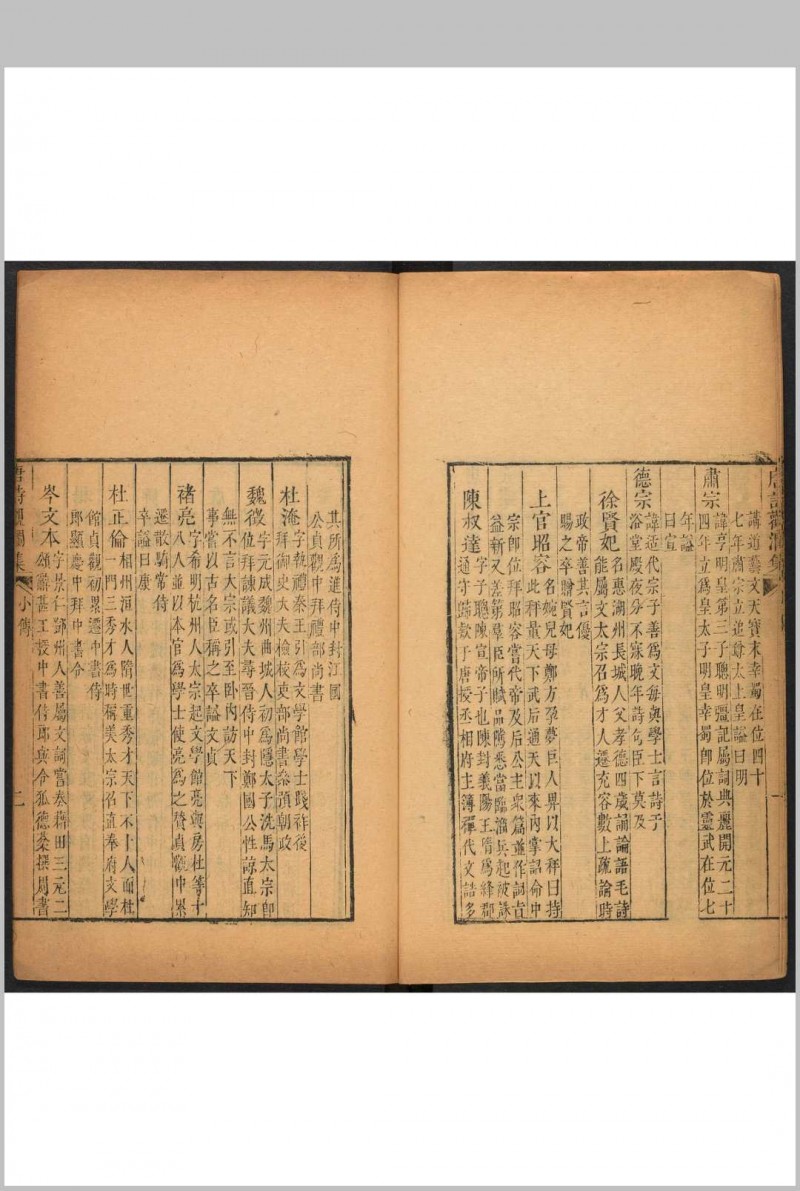 講道藝文天寶末幸蜀在位四十
七年肅宗立追尊太上皇謚曰明
肅宗
諱亨明皇第三子聰明彊記屬詞典麗開元二十
四年立爲皇太子明皇幸蜀卽位於靈武在位七
年謚
曰宣
德宗
諱适代宗子善爲文每與學士言詩于
浴堂殿夜分不寐晚年詩句臣下莫及
徐賢妃
名惠湖州長城人父孝德四歲誦論語毛詩
能屬文太宗召爲才人遷充容數上疏論時
政帝善其言優
賜之卒贈賢妃
上官昭容
名婉兒母鄭方孕夢巨人畀以大秤曰持
此秤量天下武后通天以來內掌詔命中
宗卽位拜昭容嘗代帝及后公主衆篇並作詞旨
益新又差第羣臣所賦品隲悉當臨淄兵起被誅
陳叔達
字子聰陳宣帝子也陳封義陽王隋爲絳郡
通守歸款于唐授丞相府主簿禪代文誥多
其所爲進侍中封江國
公貞觀中拜禮部尚書
杜淹
字執禮秦王引爲文學館學士踐祚後
拜御史大夫檢校吏部尚書參預朝政
魏徵
字元成魏州曲城人初爲隱太子洗馬太宗卽
位拜諫議大夫尋晉侍中封鄭國公性諒直知
無不言太宗或引至卧內訪天下
事嘗以古名臣稱之卒謚文貞
褚亮
字希明杭州人太宗起文學館亮與房杜等十
八人並以本官爲學士使亮爲之贊貞觀中累
遷散騎常侍
卒謚曰康
杜正倫
相州洹水人隋世重秀才天下不十人而杜
一門三秀才爲時稱美太宗名直秦府文學
館貞觀初累遷中書侍
郎顯慶中拜中書令
岑文本
字景仁鄧州人善屬文詞嘗奏藉田三元二
頌辭甚工擢中書侍郎與令狐德棻撰周書
唐詩觀瀾集
小傳
二